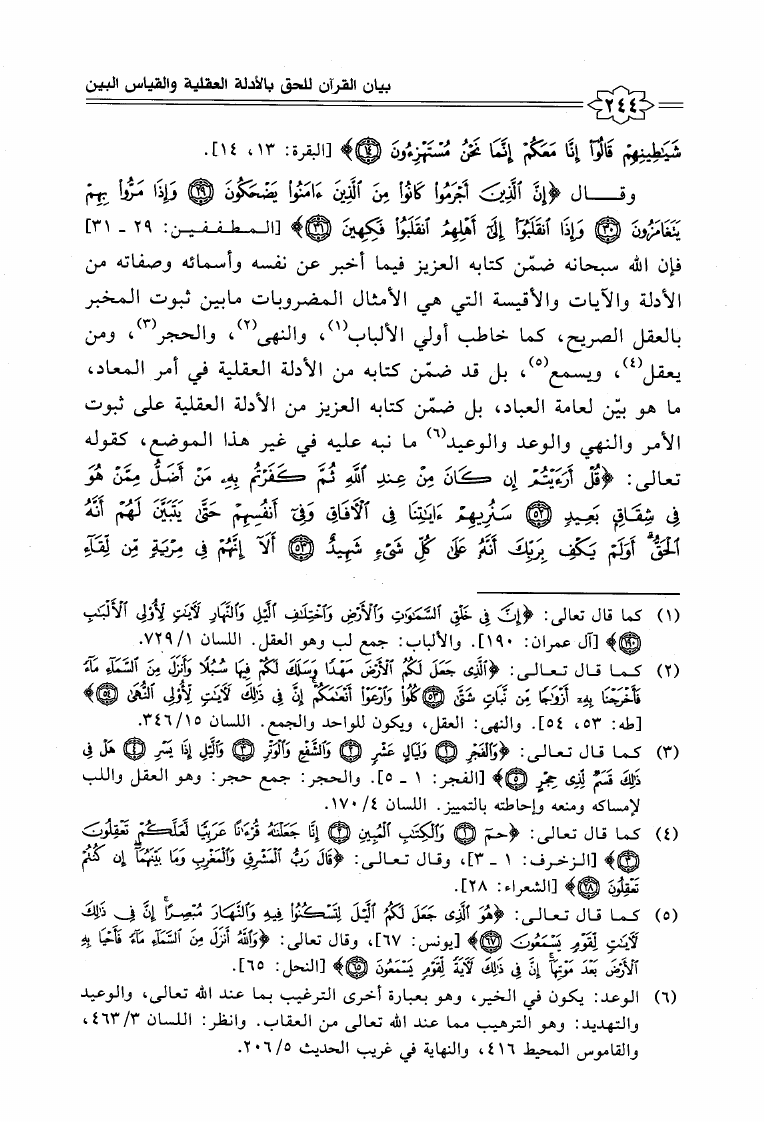 بيان القرآن للحق بالأدلة العقلية والقياس البين
٢٤٤
شَيَٰطِينِهِمْ قَالُوٓا۟ إِنَّا مَعَكُمْ إِنَّمَا نَحْنُ مُسْتَهْزِءُونَ ﴿١٤﴾﴾ [البقرة: ١٣، ١٤].
وقـــــال ﴿إِنَّ ٱلَّذِينَ أَجْرَمُوا۟ كَانُوا۟ مِنَ ٱلَّذِينَ ءَامَنُوا۟ يَضْحَكُونَ ﴿٢٩﴾ وَإِذَا مَرُّوا۟ بِهِمْ
يَتَغَامَزُونَ ﴿٣٠﴾ وَإِذَا ٱنقَلَبُوٓا۟ إِلَىٰٓ أَهْلِهِمُ ٱنقَلَبُوا۟ فَكِهِينَ ﴿٣١﴾﴾ [المطففين: ٢٩ ـ ٣١]
فإن الله سبحانه ضمّن كتابه العزيز فيما أخبر عن نفسه وأسمائه وصفاته من
الأدلة والآيات والأقيسة التي هي الأمثال المضروبات مابين ثبوت المخبر
بالعقل الصريح، كما خاطب أولي الألباب(١)، والنهى(٢)، والحجر(٣)، ومن
يعقل(٤)، ويسمع(٥)، بل قد ضمّن كتابه من الأدلة العقلية في أمر المعاد،
ما هو بيّن لعامة العباد، بل ضمّن كتابه العزيز من الأدلة العقلية على ثبوت
الأمر والنهي والوعد والوعيد(٦) ما نبه عليه في غير هذا الموضع، كقوله
تعالى: ﴿قُلْ أَرَءَيْتُمْ إِن كَانَ مِنْ عِندِ ٱللَّهِ ثُمَّ كَفَرْتُم بِهِۦ مَنْ أَضَلُّ مِمَّنْ هُوَ
فِى شِقَاقٍۭ بَعِيدٍ ﴿٥٢﴾ سَنُرِيهِمْ ءَايَٰتِنَا فِى ٱلْءَافَاقِ وَفِىٓ أَنفُسِهِمْ حَتَّىٰ يَتَبَيَّنَ لَهُمْ أَنَّهُ
ٱلْحَقُّ ۗ أَوَلَمْ يَكْفِ بِرَبِّكَ أَنَّهُۥ عَلَىٰ كُلِّ شَىْءٍ شَهِيدٌ ﴿٥٣﴾ أَلَآ إِنَّهُمْ فِى مِرْيَةٍ مِّن لِّقَآءِ
(١) كما قال تعالى: ﴿إِنَّ فِى خَلْقِ ٱلسَّمَٰوَٰتِ وَٱلْأَرْضِ وَٱخْتِلَٰفِ ٱلَّيْلِ وَٱلنَّهَارِ لَءَايَٰتٍ لِّأُو۟لِى ٱلْأَلْبَٰبِ
﴿١٩٠﴾﴾ [آل عمران: ١٩٠]. والألباب: جمع لب وهو العقل. اللسان ٧٢٩/١.
(٢) كما قال تعالى: ﴿ٱلَّذِى جَعَلَ لَكُمُ ٱلْأَرْضَ مَهْدًا وَسَلَكَ لَكُمْ فِيهَا سُبُلًا وَأَنزَلَ مِنَ ٱلسَّمَآءِ مَآءً
فَأَخْرَجْنَا بِهِۦٓ أَزْوَٰجًا مِّن نَّبَاتٍ شَتَّىٰ ﴿٥٣﴾ كُلُوا۟ وَٱرْعَوْا۟ أَنْعَٰمَكُمْ ۗ إِنَّ فِى ذَٰلِكَ لَءَايَٰتٍ لِّأُو۟لِى ٱلنُّهَىٰ ﴿٥٤﴾﴾
[طه: ٥٣، ٥٤]. والنهى: العقل، ويكون للواحد والجمع. اللسان ٣٤٦/١٥.
(٣) كما قال تعالى: ﴿وَٱلْفَجْرِ ﴿١﴾ وَلَيَالٍ عَشْرٍ ﴿٢﴾ وَٱلشَّفْعِ وَٱلْوَتْرِ ﴿٣﴾ وَٱلَّيْلِ إِذَا يَسْرِ ﴿٤﴾ هَلْ فِى
ذَٰلِكَ قَسَمٌ لِّذِى حِجْرٍ ﴿٥﴾﴾ [الفجر: ١ ـ ٥]. والحجر: جمع حجر: وهو العقل واللب
لإمساكه ومنعه وإحاطته بالتمييز. اللسان ١٧٠/٤.
(٤) كما قال تعالى: ﴿حمٓ ﴿١﴾ وَٱلْكِتَٰبِ ٱلْمُبِينِ ﴿٢﴾ إِنَّا جَعَلْنَٰهُ قُرْءَٰنًا عَرَبِيًّا لَّعَلَّكُمْ تَعْقِلُونَ
﴿٣﴾﴾ [الزخرف: ١ ـ ٣]، وقال تعالى: ﴿قَالَ رَبُّ ٱلْمَشْرِقِ وَٱلْمَغْرِبِ وَمَا بَيْنَهُمَآ ۖ إِن كُنتُمْ
تَعْقِلُونَ ﴿٢٨﴾﴾ [الشعراء: ٢٨].
(٥) كما قال تعالى: ﴿هُوَ ٱلَّذِى جَعَلَ لَكُمُ ٱلَّيْلَ لِتَسْكُنُوا۟ فِيهِ وَٱلنَّهَارَ مُبْصِرًا ۚ إِنَّ فِى ذَٰلِكَ
لَءَايَٰتٍ لِّقَوْمٍ يَسْمَعُونَ ﴿٦٧﴾﴾ [يونس: ٦٧]، وقال تعالى: ﴿وَٱللَّهُ أَنزَلَ مِنَ ٱلسَّمَآءِ مَآءً فَأَحْيَا بِهِ
ٱلْأَرْضَ بَعْدَ مَوْتِهَآ ۚ إِنَّ فِى ذَٰلِكَ لَءَايَةً لِّقَوْمٍ يَسْمَعُونَ ﴿٦٥﴾﴾ [النحل: ٦٥].
(٦) الوعد: يكون في الخير، وهو بعبارة أخرى الترغيب بما عند الله تعالى، والوعيد
والتهديد: وهو الترهيب مما عند الله تعالى من العقاب. وانظر: اللسان ٤٦٣/٣،
والقاموس المحيط ٤١٦، والنهاية في غريب الحديث ٢٠٦/٥.